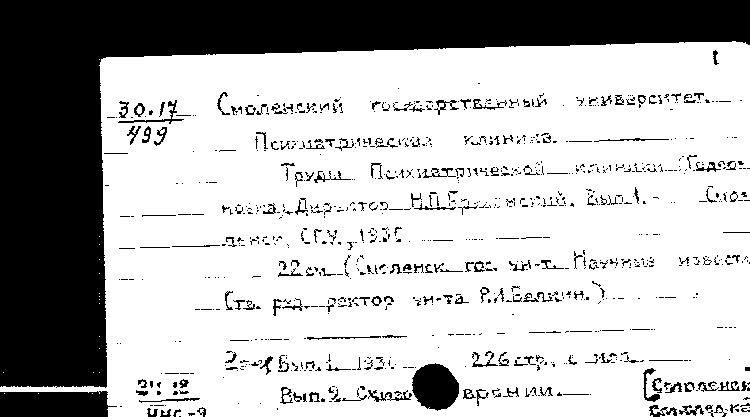 1
30.17 Смоленский государственный университет.
499
Психиатрическая клиника.
Труды Психиатрической клиники (Гедео-
новка). Директор Н.П.Бруханский. Вып.1. - Смо-
ленск, СГУ, 1930
22 см. (Смоленск. гос. ун-т. Научные извест
Отв. ред. ректор ун-та Р.И.Белкин.)
Вып.1. 1930 226 стр. с илл.
Вып.2. врении. [Смоленск